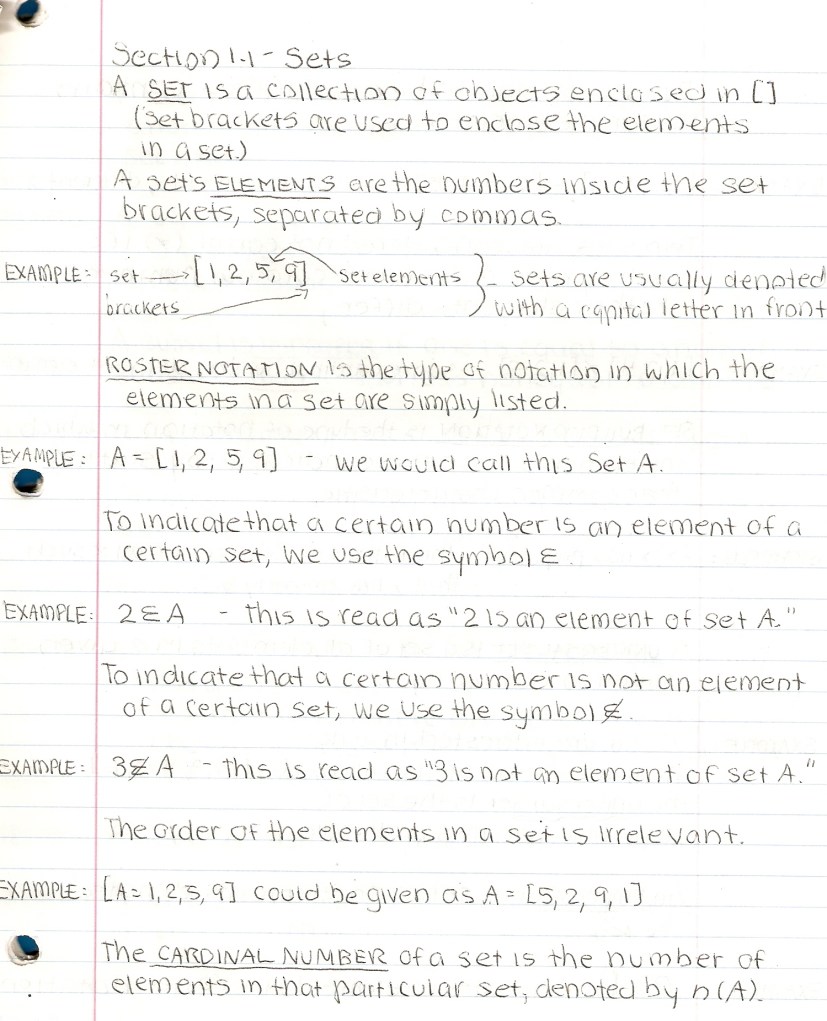 Section 1.1 - Sets
A SET is a collection of objects enclosed in []
(set brackets are used to enclose the elements
in a set.)
A set's ELEMENTS are the numbers inside the set
brackets, separated by commas.
EXAMPLE: set → [1, 2, 5, 9] set elements } - sets are usually denoted
brackets with a capital letter in front
ROSTER NOTATION is the type of notation in which the
elements in a set are simply listed.
EXAMPLE: A = [1, 2, 5, 9] - we would call this Set A.
To indicate that a certain number is an element of a
certain set, we use the symbol ∈.
EXAMPLE: 2 ∈ A - this is read as "2 is an element of set A."
To indicate that a certain number is not an element
of a certain set, we use the symbol ∉.
EXAMPLE: 3 ∉ A - this is read as "3 is not an element of set A."
The order of the elements in a set is irrelevant.
EXAMPLE: [A = 1, 2, 5, 9] could be given as A = [5, 2, 9, 1]
The CARDINAL NUMBER of a set is the number of
elements in that particular set, denoted by n(A).